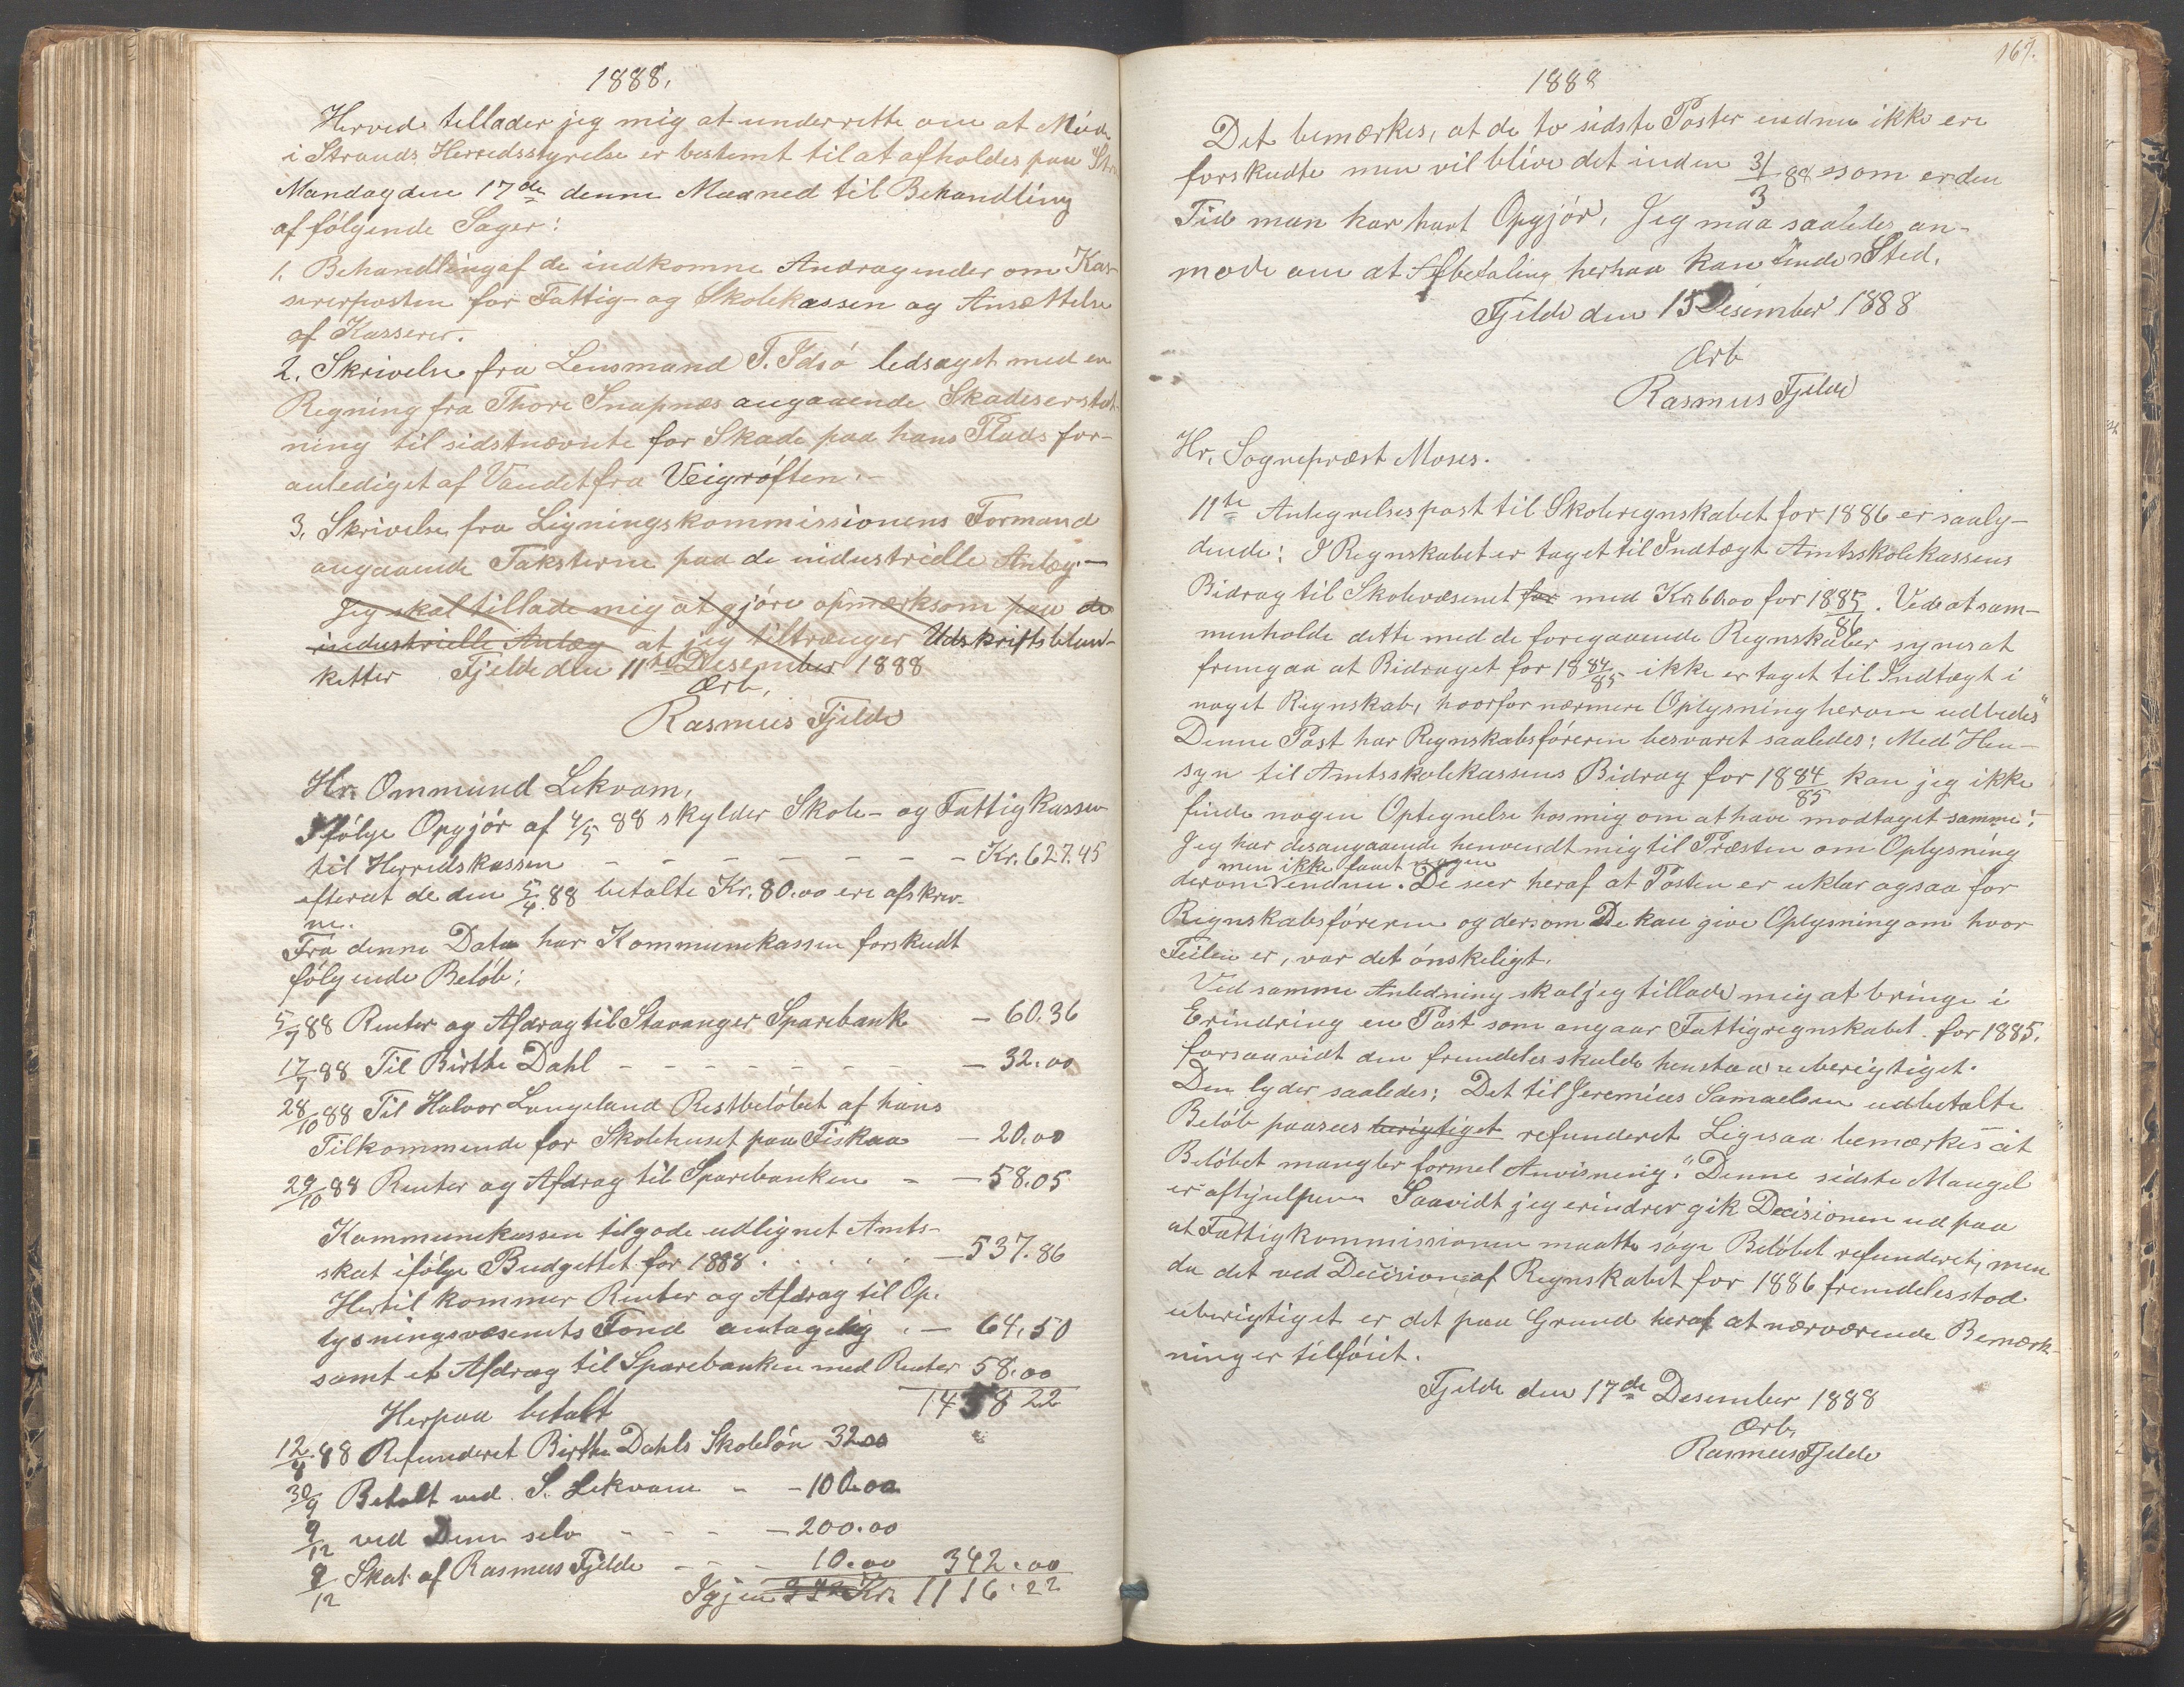 1888.
Herved tillader jeg mig at underrette om at Møde
i Strands Herredsstyrelse er bestemt til at afholdes paa
Mandag den 17de denne Maaned til Behandling
af følgende Sager:
1. Behandling af de indkomne Andragender om Kas-
sererposten for Fattig- og Skolekassen og Ansættelse
af Kasserer.
2. Skrivelse fra Lensmand T. Idsö ledsaget med en
Regning fra Thore Snapnæs angaaende Skadeserstat
ning til sidstnævnte for Skade paa hans Plads for-
anlediget af Vandet fra Veigröften.-
3. Skrivelse fra Ligningskommissionens Formand
angaaende Taksterne paa de industrielle Anlæg.-
Jeg skal tillade mig at gjöre opmærksom paa de
industrielle Anlæg at jeg tiltrænger Udskriftsblan-
ketter Fjelde den 11te Desember 1888
Ærb.
Rasmus Fjelde
Hr. Ommund Lekvam,
Ifölge Opgjör af 4/5 88 skylder Skole- og Fattigkassen
til Herredskassen - - - - - - - Kr. 627.45
efterat de den 5/4 88 betalte Kr. 80.00 ere afskrev-
ne.
Fra denne Dato har Kommunekassen forskudt
fölgende Belöb:
5/7 88 Renter og Afdrag til Stavanger Sparebank - 60.36
17/7 88 Til Birthe Dahl - - - - - - - 32.00
28/10 88 Til Halvor Langeland Restbelöbet af hans
Tilkommende for Skolehuset paa Fiskaa - 20.00
29/10 88 Renter og Afdrag til Sparebanken - - 58.05
Kommunekassen tilgode udlignet Amts-
skat ifölge Budgettet for 1888 . . . . . - 537.86
Hertil kommer Renter og Afdrag til Op-
lysningsvæsenets Fond antagelig . - 64.50
samt et Afdrag til Sparebanken med Renter 58.00
Herpaa betalt 1458 22
12/8 88 Refunderet Birthe Dahls Skolelön 32.00
30/9 Betalt ved S. Lekvam - - 100.00
9/12 ved Dem selv - - - - 200.00
9/12 Skat af Rasmus Fjelde - - - 10.00 342.00
Igjen 342 Kr. 1116.22
167.
1888
Det bemærkes, at de to sidste Poster endnu ikke ere
forskudte men vil blive det inden 31/3 88 som er den
Tid man har havt Opgjör. Jeg maa saaledes an-
mode om at Afbetaling herpaa kan finde Sted.
Fjelde den 15 Desember 1888
Ærb
Rasmus Fjelde
Hr. Sognepræst Moses.
11te Antegnelsespost til Skoleregnskabet for 1886 er saaly-
dende: I Regnskabet er taget til Indtægt Amtsskolekassens
Bidrag til Skolevæsenet for med Kr. 60.00 for 1885/86. Ved at sam-
menholde dette med de foregaaende Regnskaber synes at
fremgaa at Bidraget for 1884/85 ikke er taget til Indtægt i
noget Regnskab, hvorfor nærmere Oplysning herom udbedes"
Denne Post har Regnskabsföreren besvaret saaledes: Med Hen-
syn til Amtsskolekassens Bidrag for 1884/85 kan jeg ikke
finde nogen Optegnelse hos mig om at have modtaget samme".
Jeg har desangaaende henvendt mig til Præsten om Oplysning
men ikke faaet nogen
derom endnu. De seer heraf at Posten er uklar ogsaa for
Regnskabsföreren og dersom De kan give Oplysning om hvor
Feilen er, var det önskeligt.
Ved samme Anledning skal jeg tillade mig at bringe i
Erindring en Post som angaar Fattigregnskabet for 1885.
forsaavidt den fremdeles skulde henstaa uberigtiget.
Den lyder saaledes: Det til Jeremias Samuelsen udbetalte
Belöb paasees berigtiget refunderet Ligesaa bemærkes at
Belöbet mangler formel Anvisning." Denne sidste Mangel
er afhjulpen Saavidt jeg erindrer gik Decisionen ud paa
at Fattigkommissionen maatte söge Belöbet refunderet, men
da det ved Decision af Regnskabet for 1886 fremdeles stod
uberigtiget er det paa Grund heraf at nærværende Bemærk-
ning er tilföiet.
Fjelde den 17de Desember 1888
Ærb.
Rasmus Fjelde